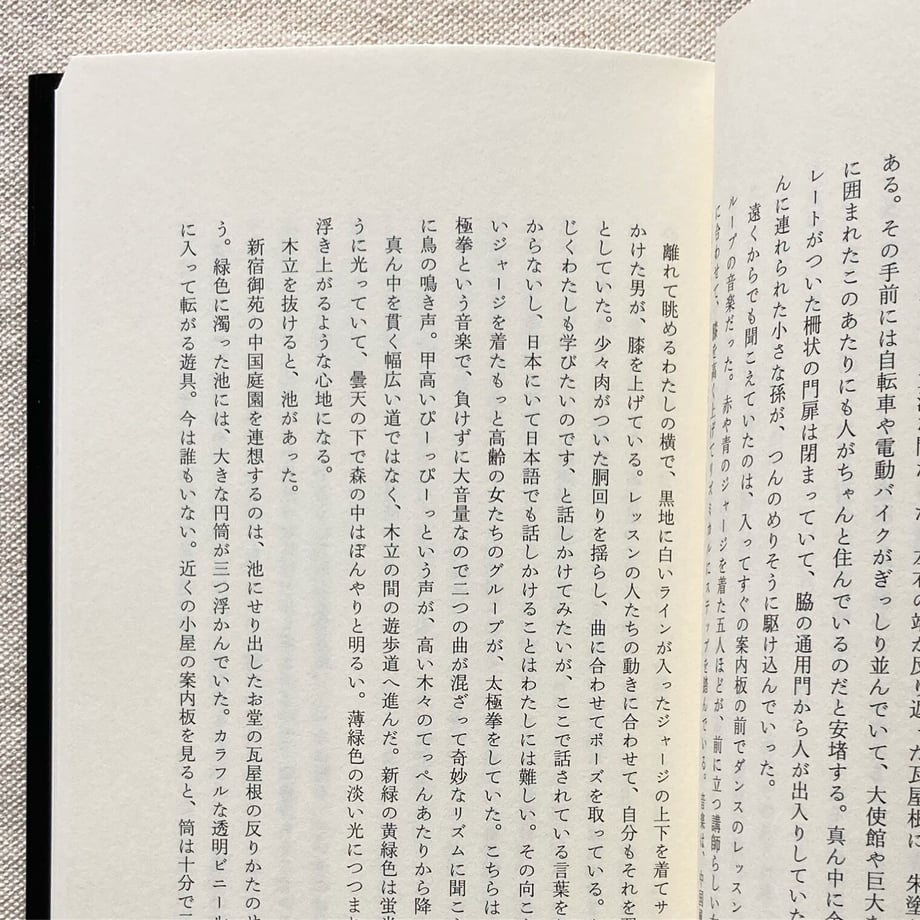 ある。その手前には自転車や電動バイクがぎっしり並んでいて、大使館や巨大
に囲まれたこのあたりにも人がちゃんと住んでいるのだと安堵する。真ん中に
レートがついた柵状の門扉は閉まっていて、脇の通用門から人が出入りしてい
んに連れられた小さな孫が、つんのめりそうに駆け込んでいった。
遠くからでも聞こえていたのは、入ってすぐの案内板の前でダンスのレッスン
ループの音楽だった。赤や青のジャージを着た五人ほどが、前に立つ講師らしい
に合わせて、膝を高く上げてリズミカルにステップを踏んでいる。音楽は、中国
離れて眺めるわたしの横で、黒地に白いラインが入ったジャージの上下を着てサ
かけた男が、膝を上げている。レッスンの人たちの動きに合わせて、自分もそれを
としていた。少々肉がついた胴回りを揺らし、曲に合わせてポーズを取っている。
じくわたしも学びたいのです、と話しかけてみたいが、ここで話されている言葉を
からないし、日本にいて日本語でも話しかけることはわたしには難しい。その向こ
いジャージを着たもっと高齢の女たちのグループが、太極拳をしていた。こちらは
極拳という音楽で、負けずに大音量なので二つの曲が混ざって奇妙なリズムに聞こ
に鳥の鳴き声。甲高いぴーっぴーっという声が、高い木々のてっぺんあたりから降
真ん中を貫く幅広い道ではなく、木立の間の遊歩道へ進んだ。新緑の黄緑色は蛍光
うに光っていて、曇天の下で森の中はぼんやりと明るい。薄緑色の淡い光につつま
浮き上がるような心地になる。
木立を抜けると、池があった。
新宿御苑の中国庭園を連想するのは、池にせり出したお堂の瓦屋根の反りかたの
う。緑色に濁った池には、大きな円筒が三つ浮かんでいた。カラフルな透明ビニール
に入って転がる遊具。今は誰もいない。近くの小屋の案内板を見ると、筒は十分で